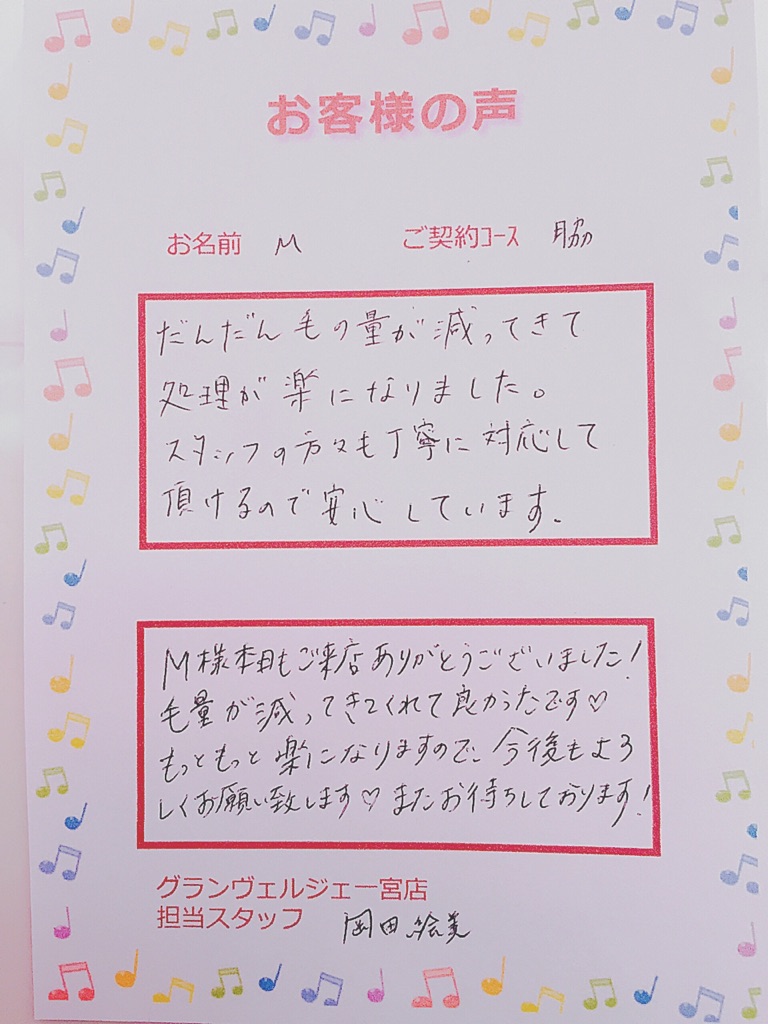 お客様の声
お名前 M ご契約コース 脇
だんだん毛の量が減ってきて
処理が楽になりました。
スタッフの方々も丁寧に対応して
頂けるので安心しています。
M様本日もご来店ありがとうございました!
毛量が減ってきてくれて良かったです♡
もっともっと楽になりますので、今後もよろ
しくお願い致します♡またお待ちしております!
グランヴェルジェ一宮店
担当スタッフ 岡田絵美